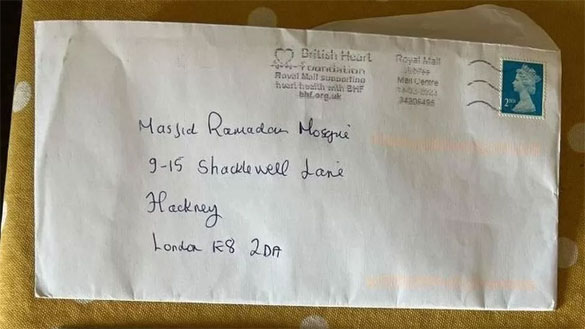 British Heart
Foundation
Royal Mail supporting
heart health with BHF
bhf.org.uk
Royal Mail
Mail Centre
2ND
Masjid Ramadan Mosque
9-15 Shacklewell Lane
Hackney
London E8 2DA